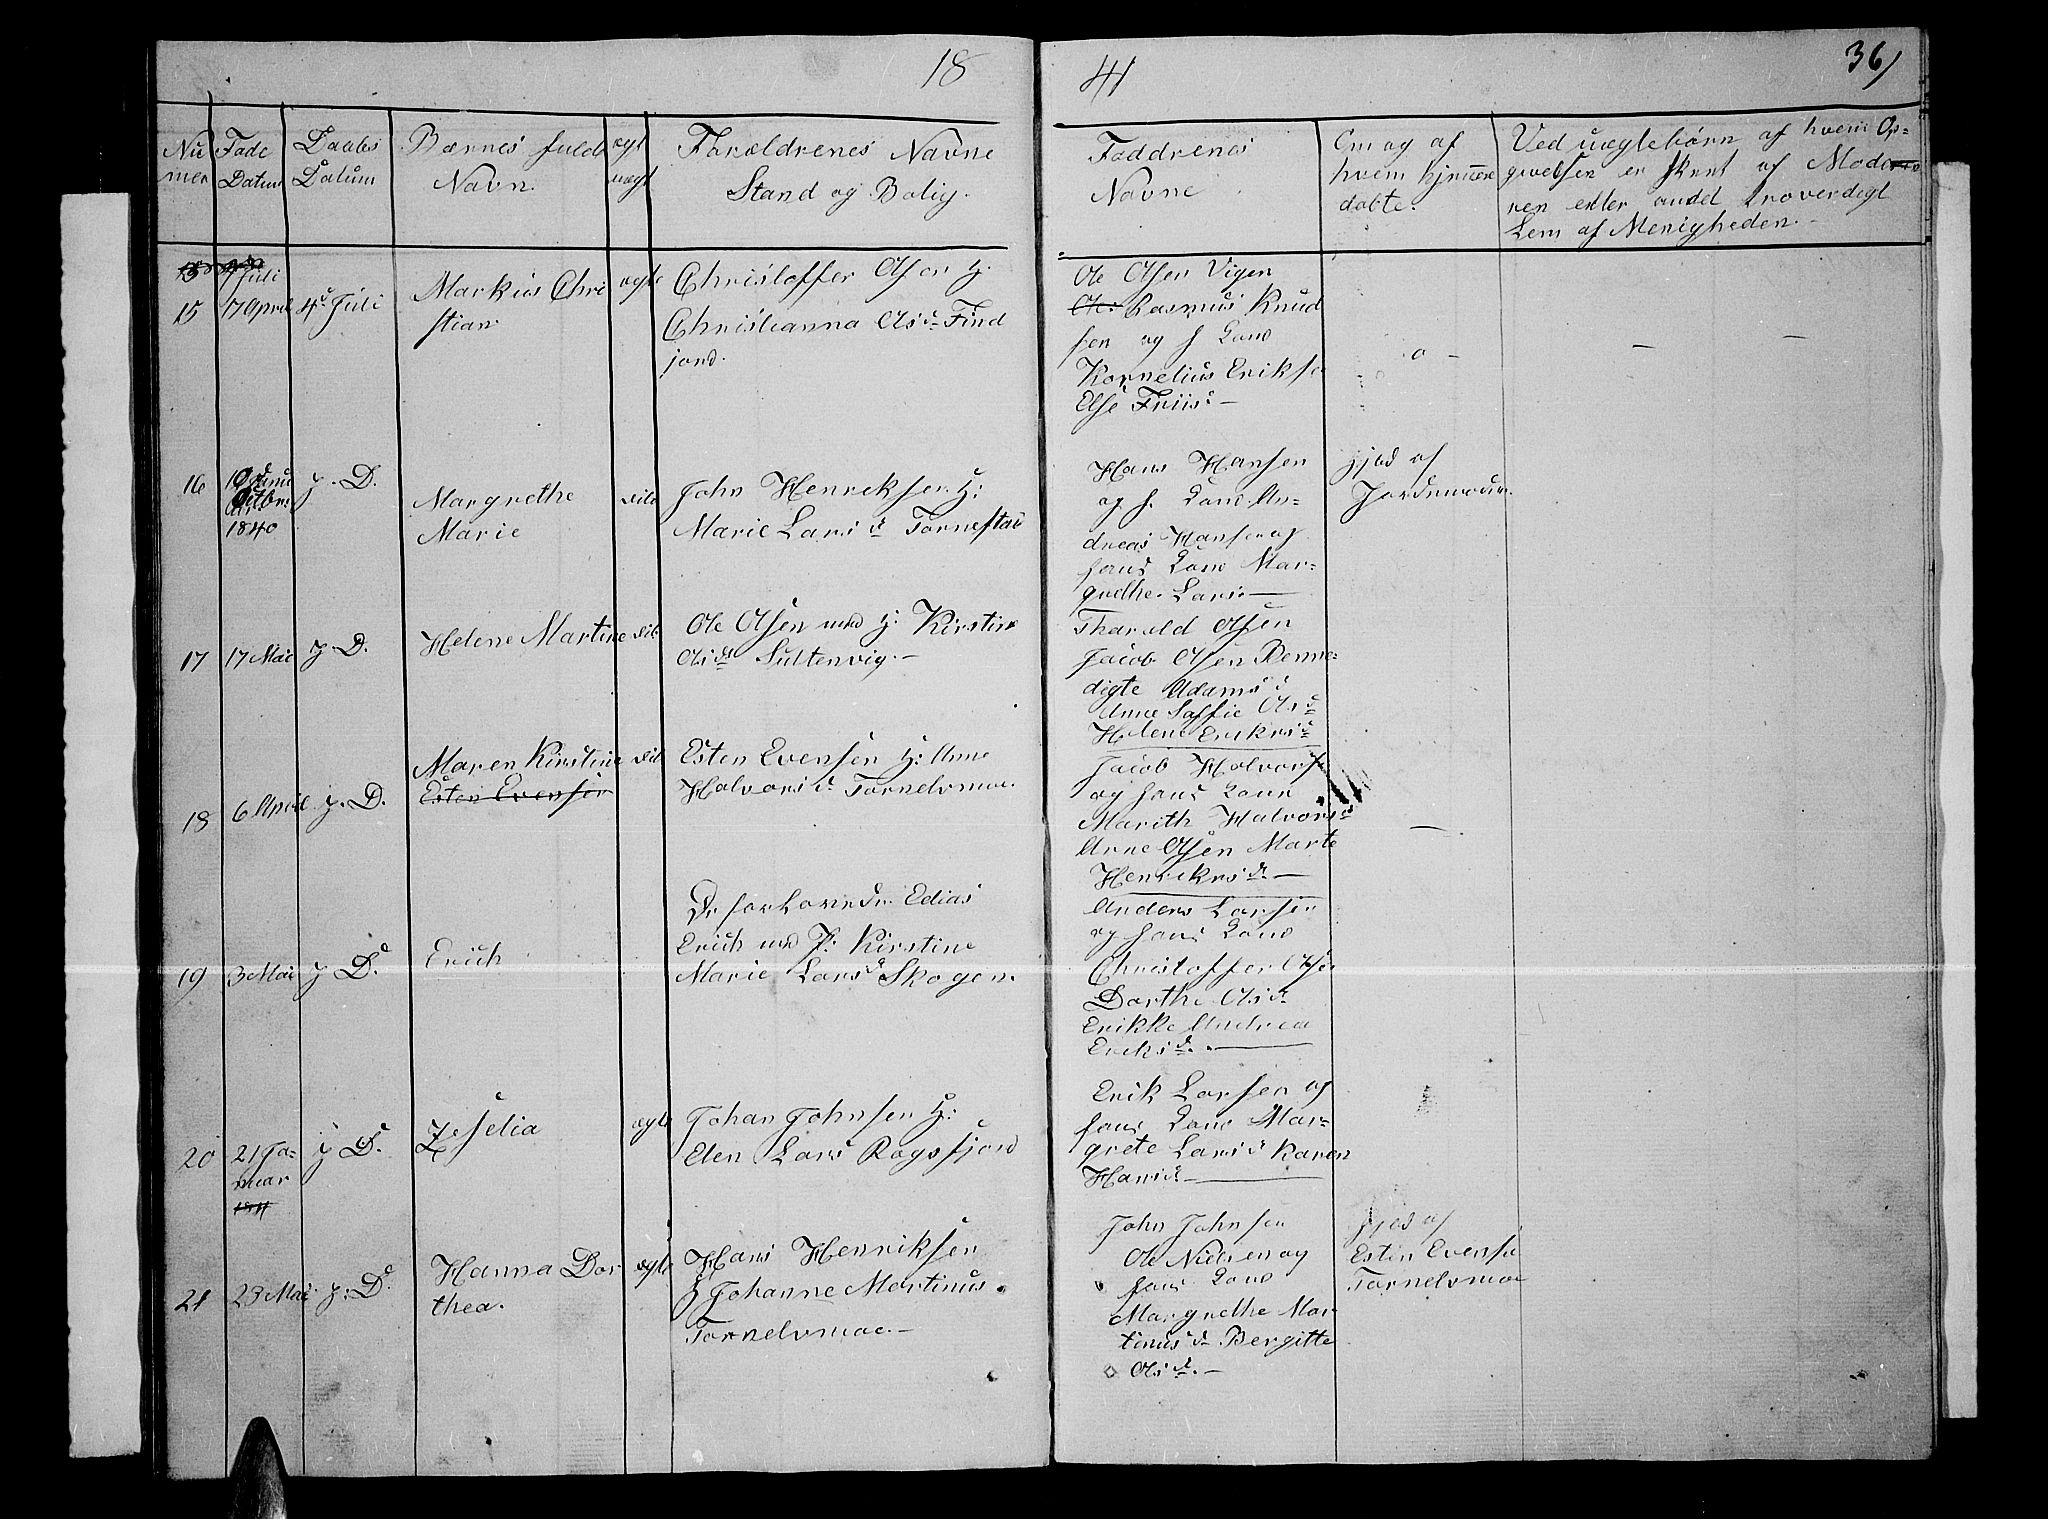 18
41
36
Nu
mer
Føde
Datum
Daabs
Datum
Børnes fulde
Navn.
ægt
uægt
Forældrenes Navne
Stand og Bolig.
Faddrenes
Navne
Om og af
hvem hjemme
døbte.
Ved uægtebørn af hvem Op-
givelsen er skeet af Mode
ren eller andet troverdigt
Lem af Menigheden.
15 17 April 4de Juli
Markus Chri
stian
ægte
Christoffer Olsen H.
Christianna Olsd Find
jord.
Ole Olsen Vigen
Rasmus Knud
sen og s Kone
Kornelius Erikse
Else Friis
16
1840
J. D.
Margrethe
Marie
John Henriksen H:
Marie Larsd Tornestad
Hans Hansen
og s. Kone An-
dreas Hansen og
hans Kone Mar-
grethe Larsd
hjed af
Jordemoder.
17 17 Mai J. D.
Helene Martine
Ole Olsen med H. Kirstine
Olsd Sultenvig.
Tharald Olsen
Jacob Olsen Benne-
digte Adamsd
Anne Soffie Olsd
Helene Eriksd
18 6 April J. D.
Maren Kirstine
Esten Evensen
Esten Evensen H: Anne
Halvorsd Tornelvmoe.
Jacob Halvors
og hans Kone
Marith Halvorsd
Anne Olsen Marte
Henrikrsd.
19 3 Mai J D.
Erich
Edias
Erich med H: Kirstine
Marie Larsd Skogen.
Anders Larsen
og hans Kone
Christoffer Olsen
Dorthe Olsd
Erikke Andrea
Eriksd.
20 21 Ja-
nuar
J D.
Zeselia
ægte
Johan Johnsen H:
Elen Lars Rogsfjord
Erik Larsen og
hans Kone Mar-
grete Larsd Karen
Hansd
21 23 Mai J: D.
Hanna Dor
thea.
ægte
Hans Henriksen
H Johanne Martinus.
Tornelvmoe.
John Johnsen
Ole Nielsen og
hans Kone
Margrethe Mar
tinusd Bergitte
Olsd.
hjed af
Esten Evense
Tornelvmoe